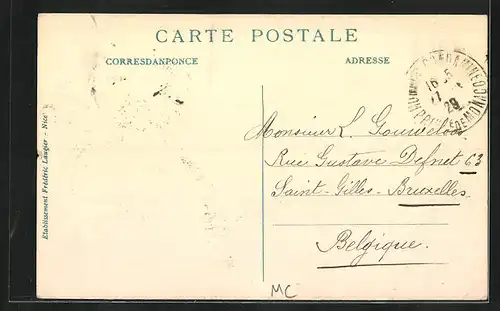 CARTE POSTALE
CORRESDANPONCE
ADRESSE
16 5
29
DE MONACO
Monsieur L.
Rue Gustave Defnet 63
Saint-Gilles-Bruxelles.
Belgique.
Etablissement Frédéric Laugier - Nice
MC